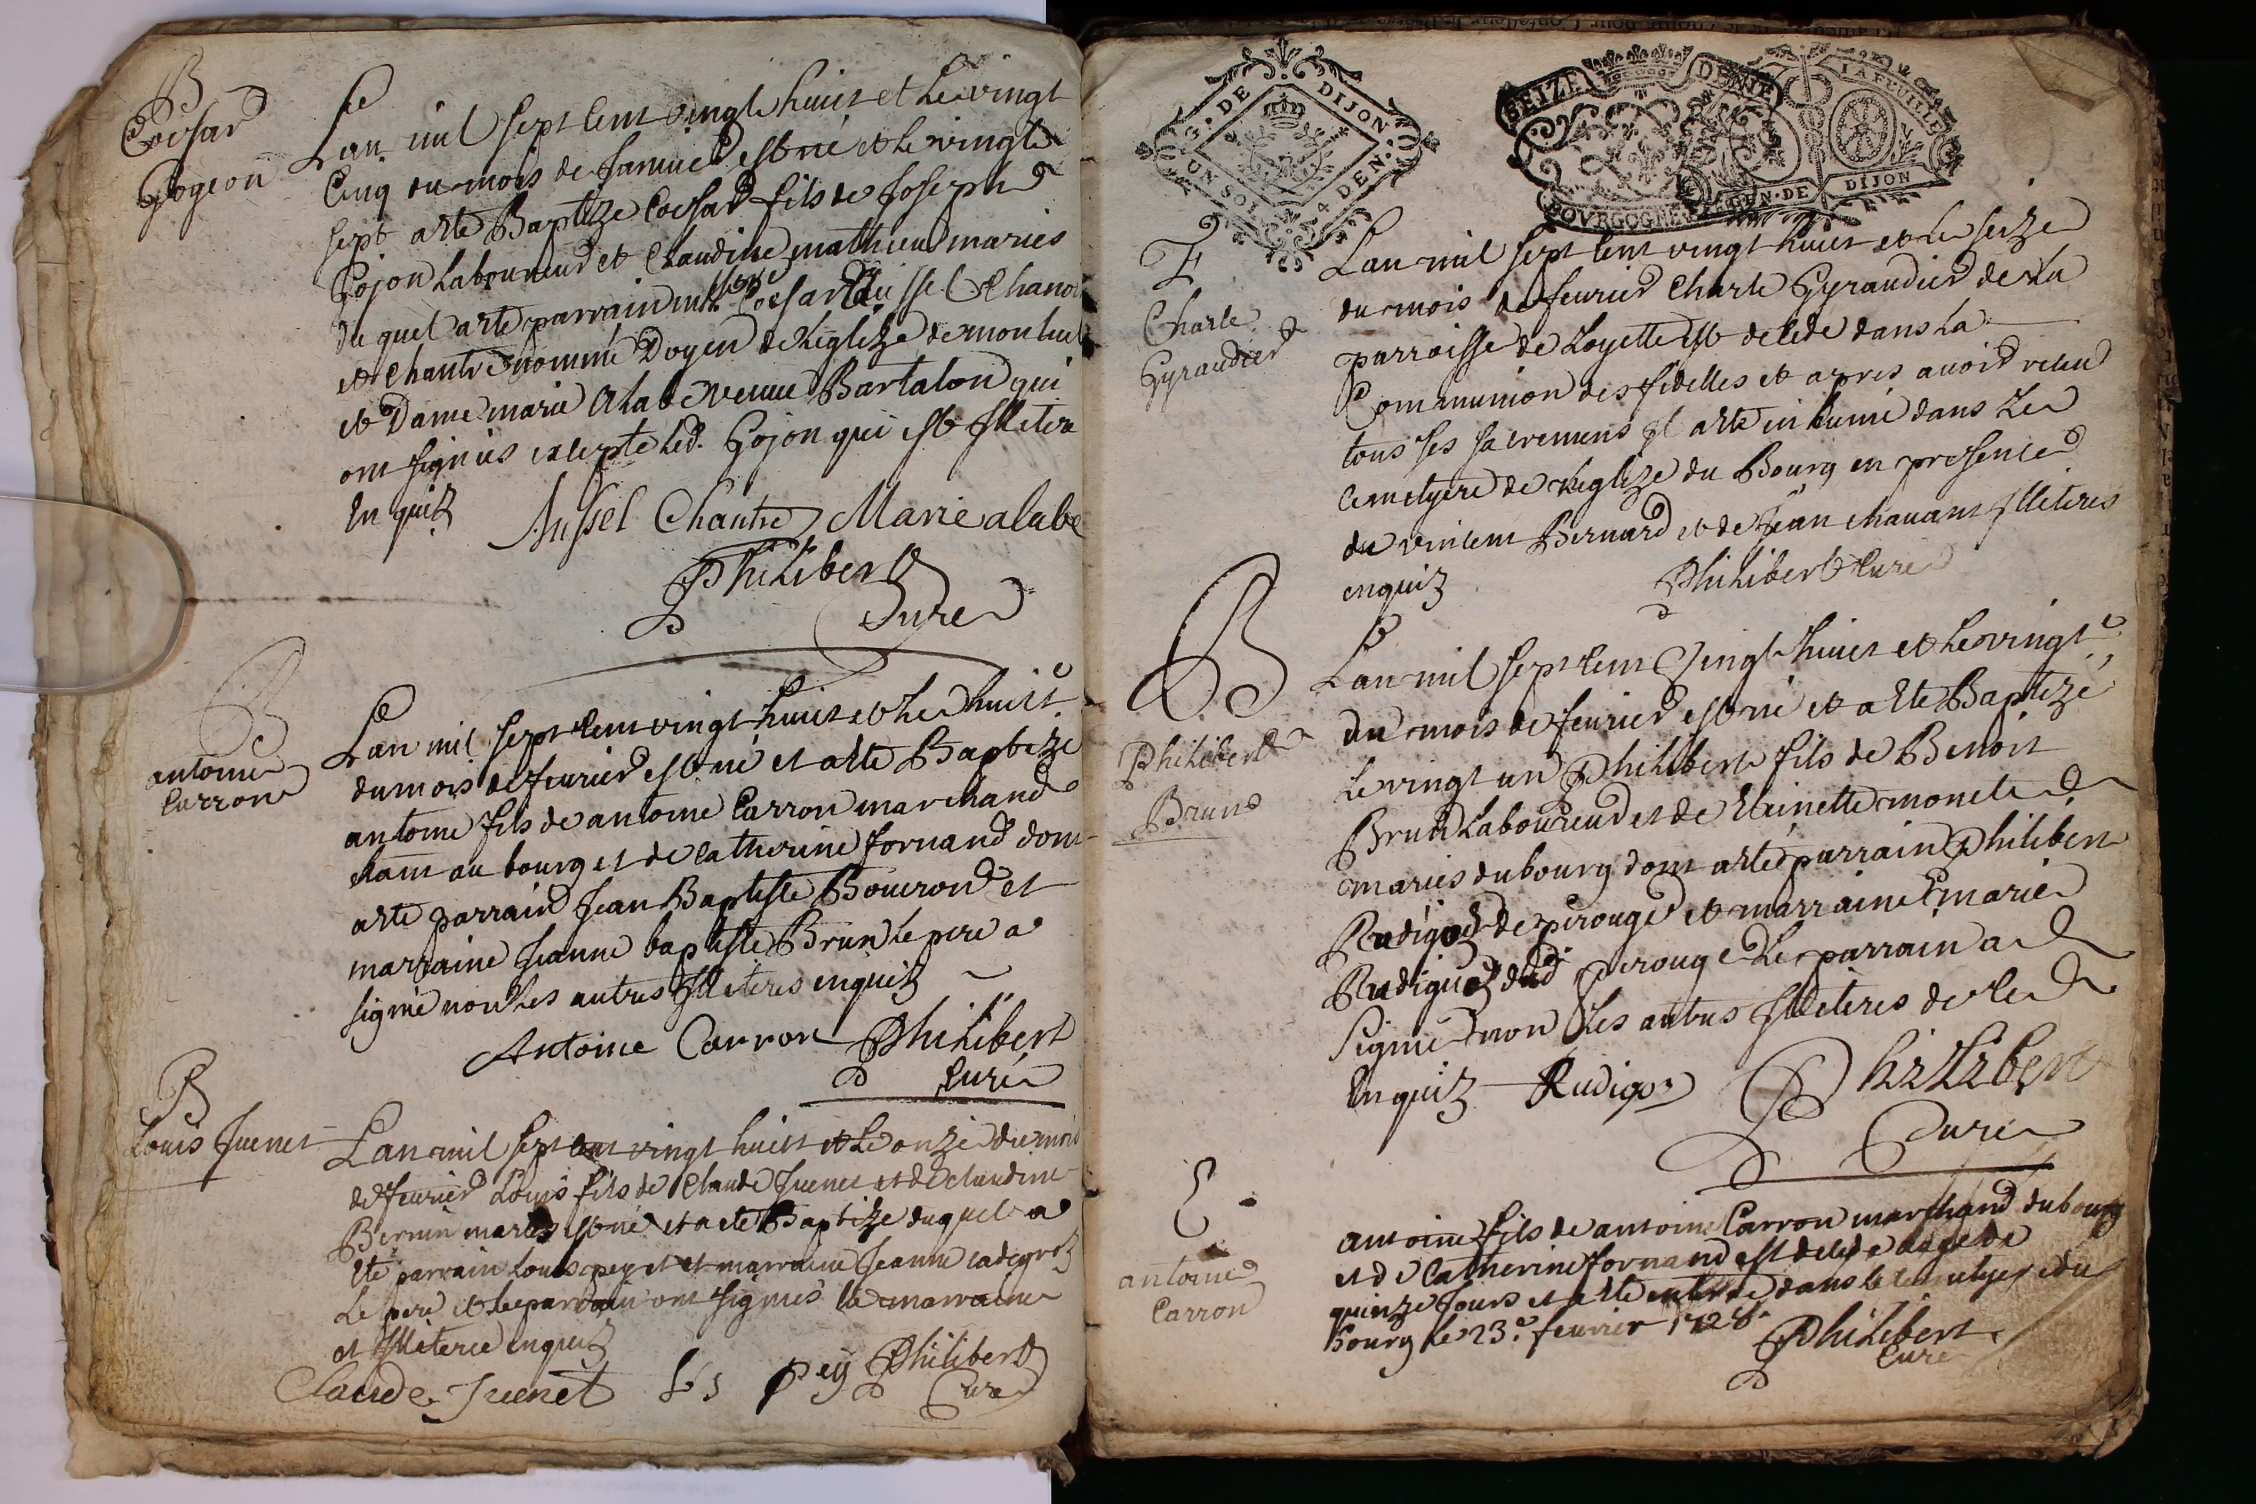 B
Coesar
Gogeon
Lan mil sept cent vingt huict et le vingt
Cinq du mois de Janvier est né et le vingt
sept a esté Baptize Coesar fils de Joseph
Gojon Laboureur et Claudine mathieu mariés
du quel a esté parrain Coesar Chanoi
et Chantre nommé Doyen de Leglize de montluel
et Dame marie Alabe veuve Bartalon qui
ont signés excepte led. Gojon qui est Illetere
Enquiz
Aussel Chantre Marie alabe
Philibert
Curé
B
antoine
Carron
Lan mil sept cent vingt huict et le huict
du mois de feurier est né et a esté Baptize
antoine fils de antoine Carron marchand
au bourg et de Catherine fornand dont
a esté parrain Jean Baptiste Bouuron et
marraine Jeanne baptiste Brun le pere a
signé non les autres Illeteres enquiz
Antoine Carron Philibert
Curé
B
Louis Juenet
Lan mil sept cent vingt huict et le onze du mois
de feurier Louis fils de Claude Juenet et de Claudine
Bernin mariés est né et a esté Baptize duquel a
été parrain Louis pey et et marraine Jeanne
Le pere et le parrain ont signés la marraine
et Illeteree enquiz
Claude Juenet Ls pey Philibert
Curé
G. DE DIJON
UN SOL 4 DEN.
SEIZE DENIE
LA FEUILLE
BOVRGOGNE
GEN. DE DIJON
E
Charle
Gyraudier
Lan mil sept cent vingt huict et le seize
du mois de feurier Charle Gyraudier de la
parroisse de Loyette est decede dans la
Communion des fidelles et apres auoir receu
tous ses sacremens Il a esté inhumé dans Le
Cemetyere de Leglize du Bourg en presence
de vincent Bernard et de Jean chauant Illeteres
enquiz Philibert Curé
B
Philibert
Brun
Lan mil sept cent Vingt huict et le vingt
du mois de feurier est né et a esté Baptizé
Le vingt un Philibert fils de Benoit
Brun Laboureur et de monet
mariés du bourg dont a esté parrain Philibert
Rudigoz de perouge et marraine marie
Rudiguoz dud perouge Le parrain a
Signé non Les autres Illeteres de ce
Enquiz Rudigoz Philibert
Curé
E
antoine
Carron
antoine fils de antoine Carron marchand du bourg
et de Catherine fornand est decede age de
quinze Jours et a esté enterré dans le cemetyere du
bourg le 23e feurier 1728.
Philibert
Curé